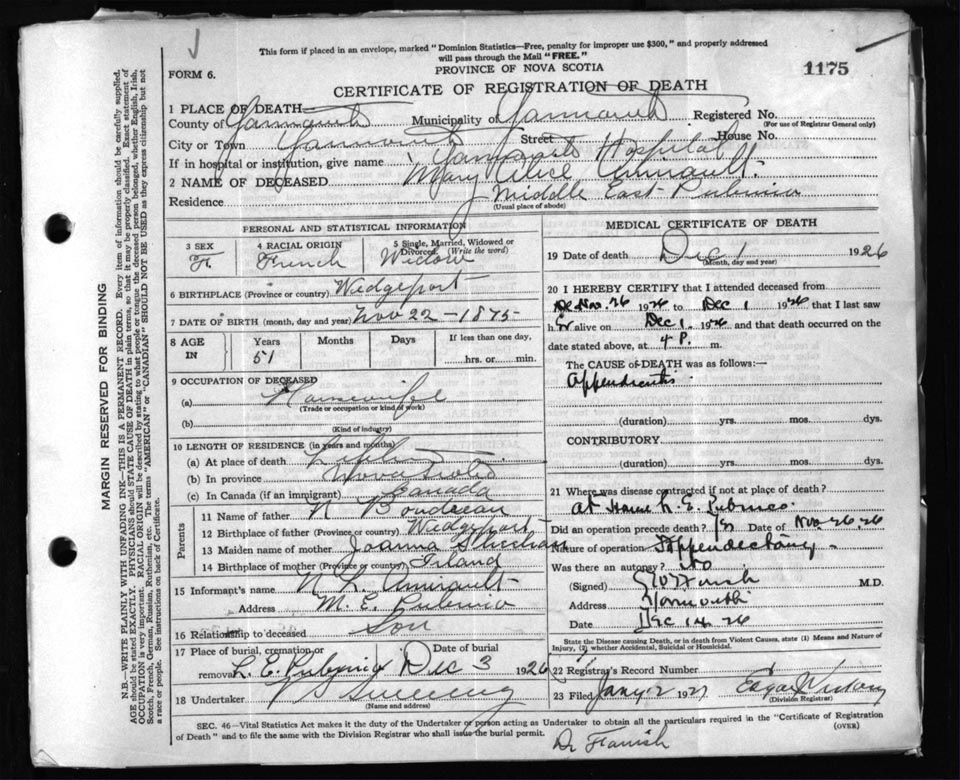 This form if placed in an envelope, marked "Dominion Statistics—Free, penalty for improper use $300," and properly addressed
will pass through the Mail "FREE."
FORM 6.
PROVINCE OF NOVA SCOTIA
1175
CERTIFICATE OF REGISTRATION OF DEATH
1 PLACE OF DEATH—
County of Yarmouth Municipality of Yarmouth Registered No.
(For use of Registrar General only)
City or Town Yarmouth Street House No.
If in hospital or institution, give name Yarmouth Hospital
2 NAME OF DECEASED Mary Alice Amirault.
Residence Middle East Pubnico
(Usual place of abode)
PERSONAL AND STATISTICAL INFORMATION
3 SEX F. 4 RACIAL ORIGIN French 5 Single, Married, Widowed or Divorced. (Write the word) Widow
6 BIRTHPLACE (Province or country) Wedgeport
7 DATE OF BIRTH (month, day and year) Nov 22 - 1875-
8 AGE IN Years 51 Months Days If less than one day, hrs. or min.
9 OCCUPATION OF DECEASED
(a) Housewife
(Trade or occupation or kind of work)
(b)
(Kind of industry)
10 LENGTH OF RESIDENCE (in years and months)
(a) At place of death
(b) In province Nova Scotia
(c) In Canada (if an immigrant) Canada
Parents
11 Name of father N Boudreau
12 Birthplace of father (Province or country) Wedgeport
13 Maiden name of mother Joanna Sheehan
14 Birthplace of mother (Province or country) Irland
15 Informant's name Amirault
Address M. E. Pubnico
16 Relationship to deceased Son
17 Place of burial, cremation or removal E. Pubnico Date of burial Dec 3 1926
18 Undertaker
(Name and address)
MEDICAL CERTIFICATE OF DEATH
19 Date of death Dec 1 1926
(Month, day and year)
20 I HEREBY CERTIFY that I attended deceased from
Nov. 26 1926 to Dec 1 1926 that I last saw
her alive on Dec 1. 1926 and that death occurred on the
date stated above, at 4 P. m.
The CAUSE of DEATH was as follows:—
Appendicitis
(duration) yrs. mos. dys.
CONTRIBUTORY
(duration) yrs. mos. dys.
21 Where was disease contracted if not at place of death?
At Home E. Pubnico
Did an operation precede death? Yes Date of Nov 26 26
Nature of operation Appendectomy
Was there an autopsy? No
(Signed) M.D.
Address Yarmouth
Date Dec 14 26
State the Disease causing Death, or in death from Violent Causes, state (1) Means and Nature of
Injury, (2) whether Accidental, Suicidal or Homicidal.
22 Registrar's Record Number
23 Filed Jany 2 1927 Edgar
(Division Registrar)
SEC. 46—Vital Statistics Act makes it the duty of the Undertaker or person acting as Undertaker to obtain all the particulars required in the "Certificate of Registration
of Death" and to file the same with the Division Registrar who shall issue the burial permit.
(OVER)
MARGIN RESERVED FOR BINDING
N.B.—WRITE PLAINLY WITH UNFADING INK—THIS IS A PERMANENT RECORD. Every item of information should be carefully supplied.
AGE should be stated EXACTLY. PHYSICIANS should STATE CAUSE OF DEATH in plain terms, so that it may be properly classified. Exact statement of
OCCUPATION is very important. RACIAL ORIGIN will be described by stating to what people or tongue the deceased person belonged, whether English, Irish,
Scotch, French, German, Russian, Ruthenian, etc. The terms "AMERICAN" or "CANADIAN" SHOULD NOT BE USED as they express citizenship but not
a race or people. See instructions on back of Certificate.